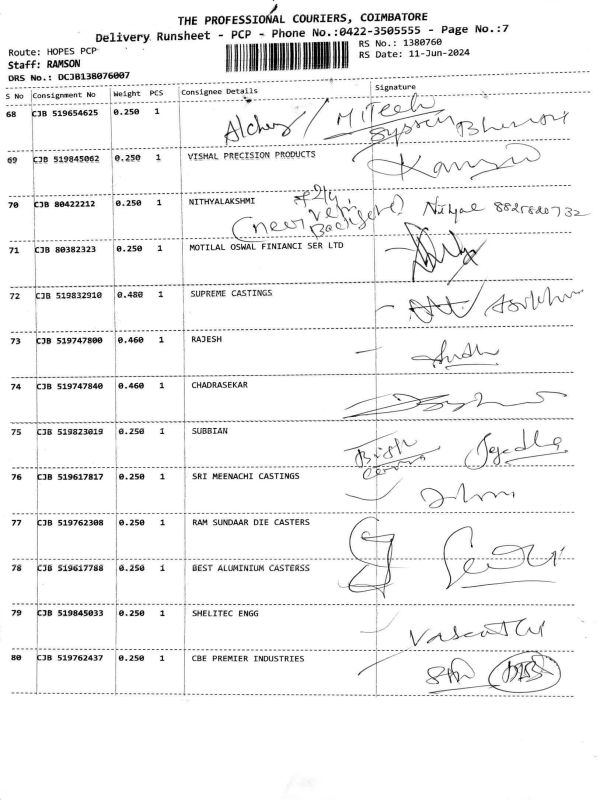 THE PROFESSIONAL COURIERS, COIMBATORE
Delivery Runsheet - PCP - Phone No.:0422-3505555 - Page No.:7
Route: HOPES PCP
RS No.: 1380760
Staff: RAMSON
RS Date: 11-Jun-2024
DRS No.: DCJB138076007
S No Consignment No Weight PCS Consignee Details Signature
68 CJB 519654625 0.250 1
MiTech
69 CJB 519845062 0.250 1 VISHAL PRECISION PRODUCTS
70 CJB 80422212 0.250 1 NITHYALAKSHMI
71 CJB 80382323 0.250 1 MOTILAL OSWAL FINIANCI SER LTD
72 CJB 519832910 0.480 1 SUPREME CASTINGS
73 CJB 519747800 0.460 1 RAJESH
74 CJB 519747840 0.460 1 CHADRASEKAR
75 CJB 519823019 0.250 1 SUBBIAN
76 CJB 519617817 0.250 1 SRI MEENACHI CASTINGS
77 CJB 519762308 0.250 1 RAM SUNDAAR DIE CASTERS
78 CJB 519617788 0.250 1 BEST ALUMINIUM CASTERSS
79 CJB 519845033 0.250 1 SHELITEC ENGG
80 CJB 519762437 0.250 1 CBE PREMIER INDUSTRIES